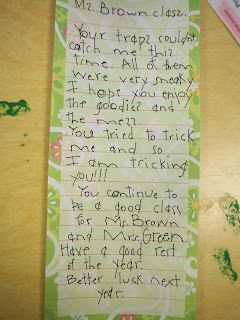 Ms. Brown class,
Your traps couldn't
catch me this
time. All of them
were very sneaky
I hope you enjoy
the goodies and
the mess.
You tried to trick
me and so
I am tricking
you!!!
You continue to
be a good class
for Ms. Brown
and Mrs. Green.
Have a good rest
of the year.
Better luck next
year.